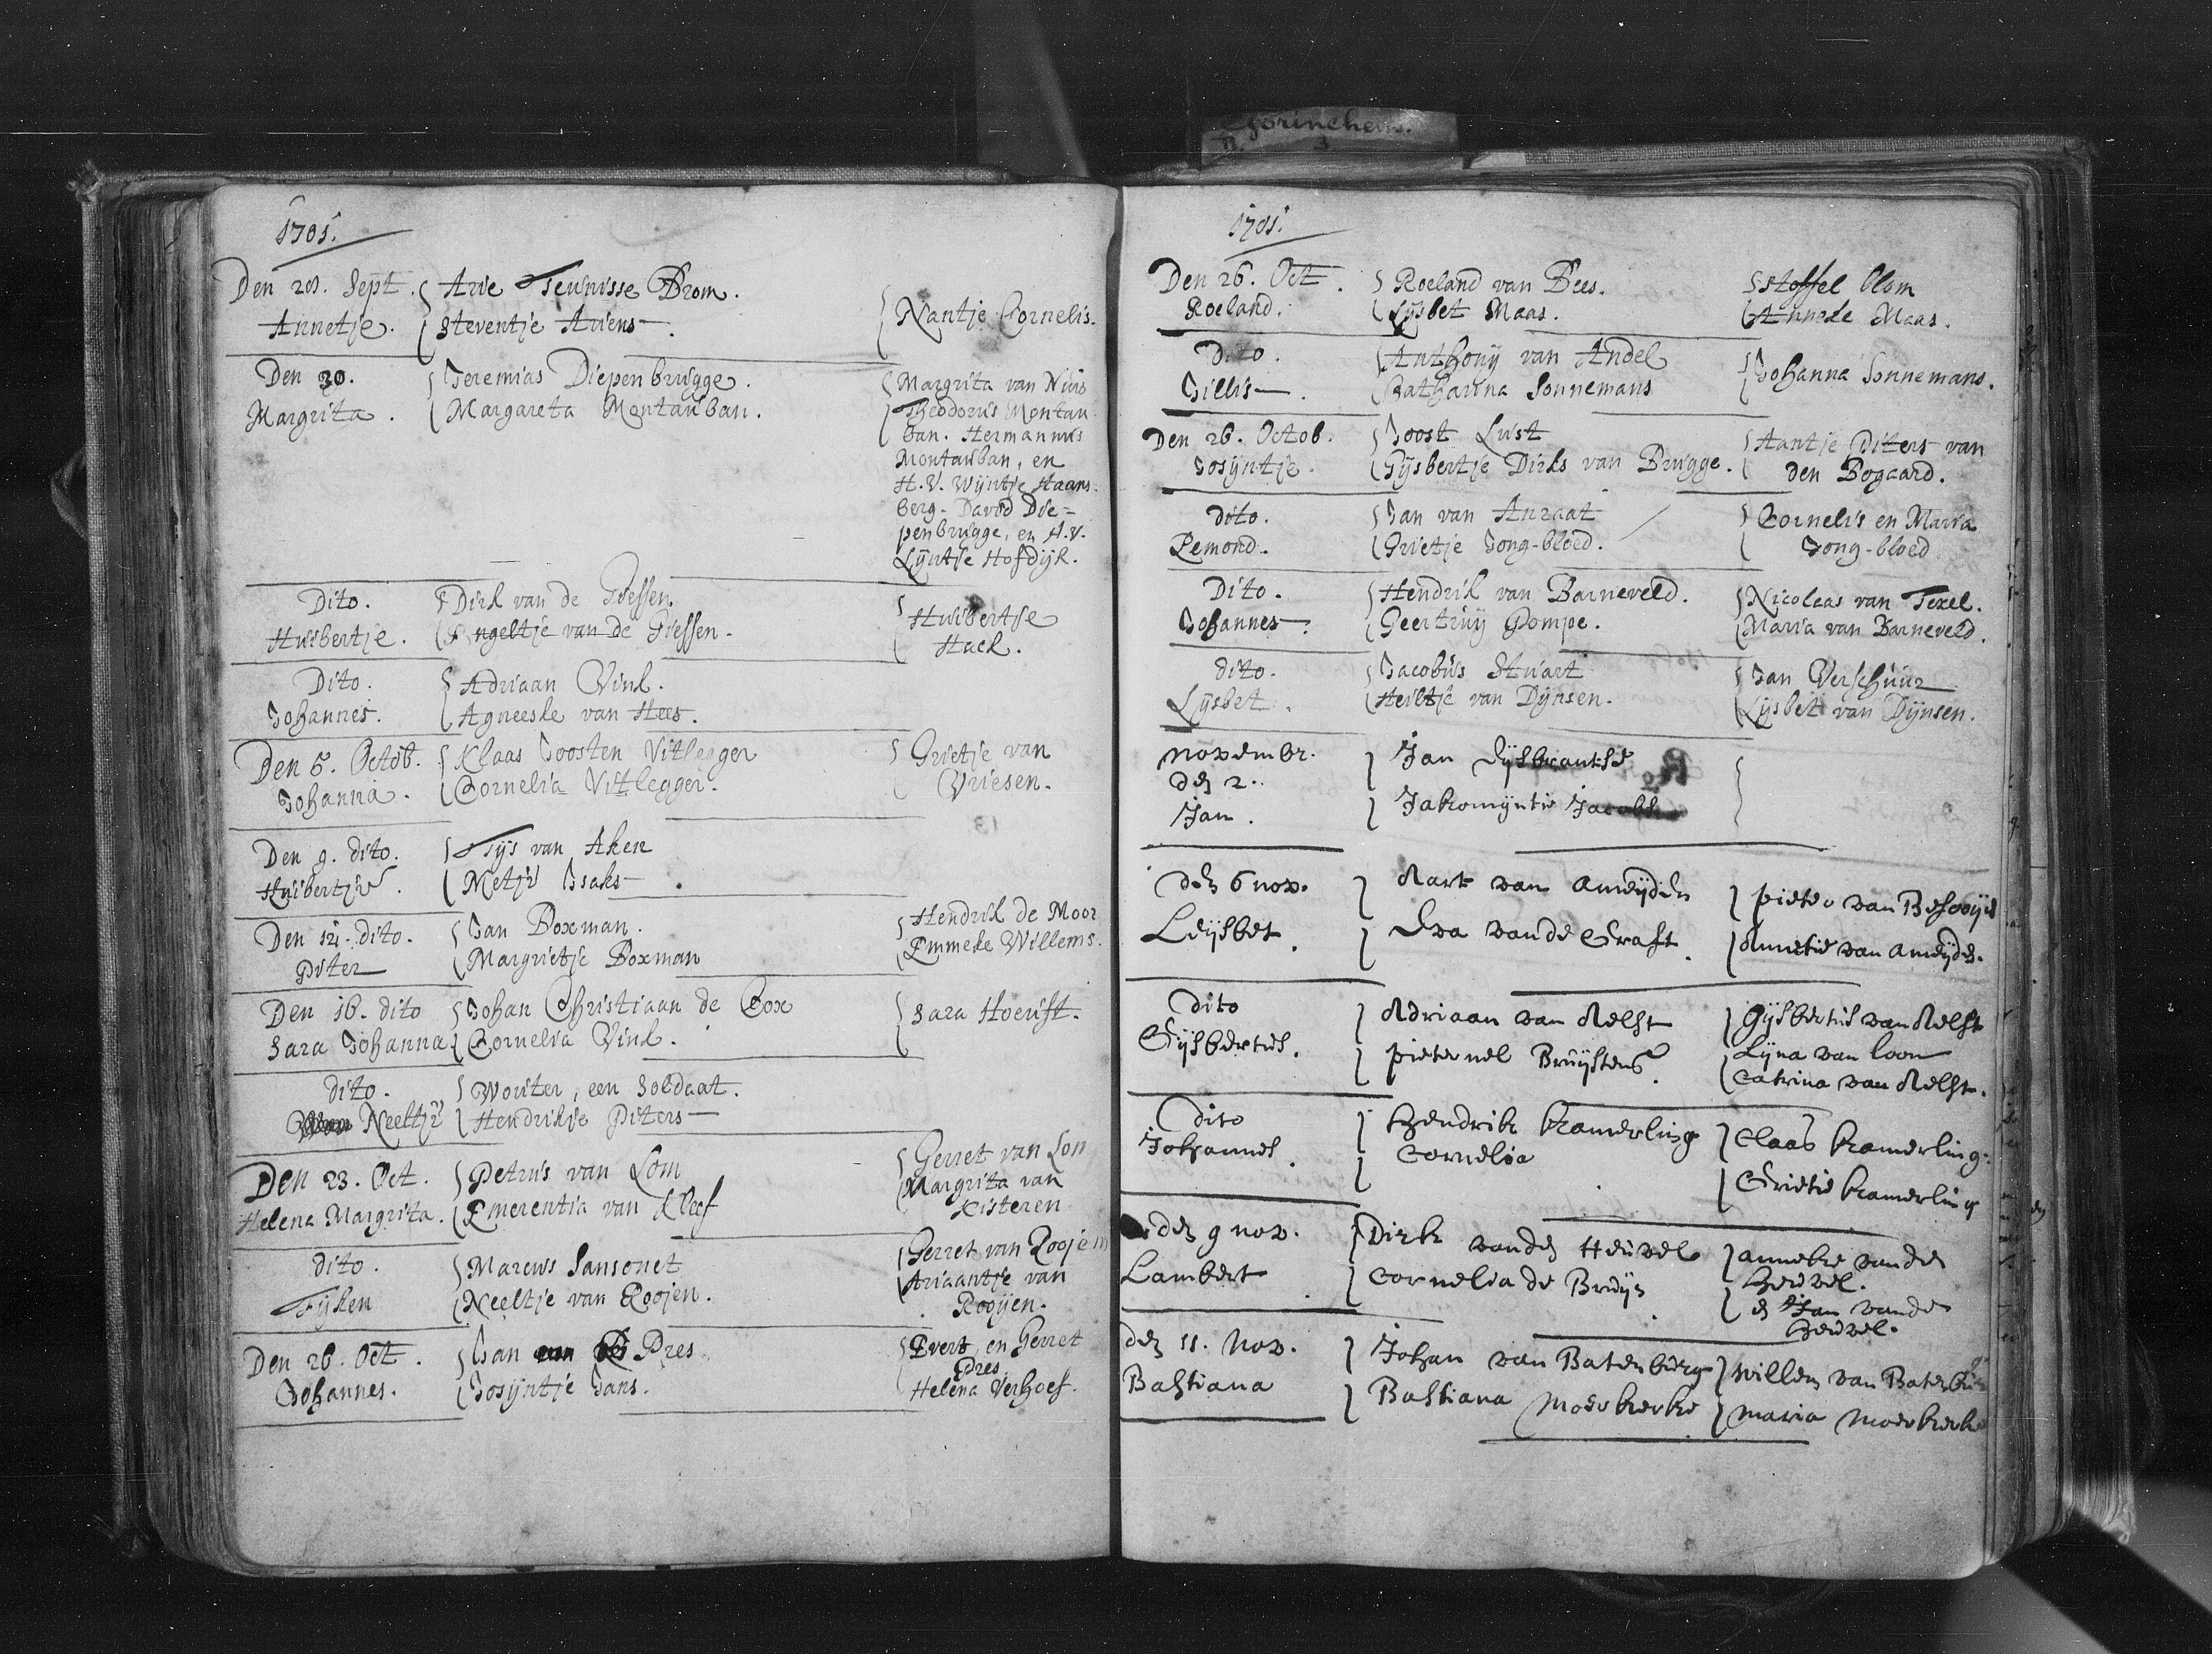 Gorinchem.
3
1701.
Den 28. Sept. Arie Teunisse Brom.
Annetje. Steventje Ariens. Nantje Cornelis.
Den 30. Jeremias Diepenbrugge. Margrita van Nuis
Margrita. Margareta Montauban. Theodorus Montau
ban. Hermannus
Montauban, en
H. V. Wijntje Haans
berg. David Die=
penbrugge, en H. V.
Lijntje Hofdijk.
Dito. Dirk van de Giessen. Huibertje
Huibertje. Engeltje van de Giessen. Hack.
Dito. Adriaan Vink.
Johannes. Agneeske van Hees.
Den 5. Octob. Klaas Joosten Vitlegger Grietje van
Johanna. Cornelia Vitlegger. Vriesen.
Den 9. dito. Tijs van Aken
Huibertje. Metje Isaks.
Den 12. dito. Jan Boxman. Hendrik de Moor
Piter Margrietje Boxman Emmeke Willems.
Den 16. dito Johan Christiaan de Cox Sara Hoeuft.
Sara Johanna Cornelia Vink.
dito. Wouter, een Soldaat.
Neeltje Hendrikje Piters
Den 23. Oct. Petrus van Lom Gerret van Lon
Helena Margrita. Emerentia van Kleef Margrita van
Kisteren
dito. Marcus Sansonet Gerret van Roojen
Fijken Neeltje van Roojen. Ariaantje van
Rooijen.
Den 26. Oct. Jan Pres Evert en Gerret
Pres
Johannes. Josijntje Jans. Helena Verhoef.
1701.
Den 26. Oct. Roeland van Bees. Stoffel blom
Roeland. Lijsbet Maas. Anneke Maas.
Dito. Anthonij van Andel Johanna Sonnemans.
Gillis. Catharina Sonnemans
Den 26. Octob. Joost Lust Aantje Piters van
Josijntje. Gijsbertje Dirks van Brugge. den Bogaard.
dito. Jan van Anraat Cornelis en Maria
Remond. Grietje Jong-bloed. Jong-bloed
Dito. Hendrik van Barneveld. Nicolaas van Texel.
Johannes. Geertruij Pompe. Maria van Barneveld.
dito. Jacobus Stuart Jan Verschuur
Lijsbet. Heiltje van Dijnsen. Lijsbet van Dijnsen.
Novembr. Jan Eijsbrantse
den 2.
Jan. Jakomijntie Jacobse
den 6 nov. Aart van Ameijden pieter van Besooijen
Leijsbet. Eva vande Graft. Annetie van Ameijden.
dito Adriaan van Aelst Gijsbertus van Aelst
Gijsbertus. pieternel Bruijstens. Lijna van loon
Catrina van Aelst.
dito Hendrik kamerling Claas kamerling.
Johannes. Cornelia Grietie kamerling
den 9 nov. Dirk vanden Heuvel anneke vanden
Lambert Cornelia de Bruijn Heuvel.
en Jan vande
Heuvel.
den 11. Nov. Johan van Batenburg willem van Batenbur
Bastiana Bastiana Moerkerke maria Moerkerke